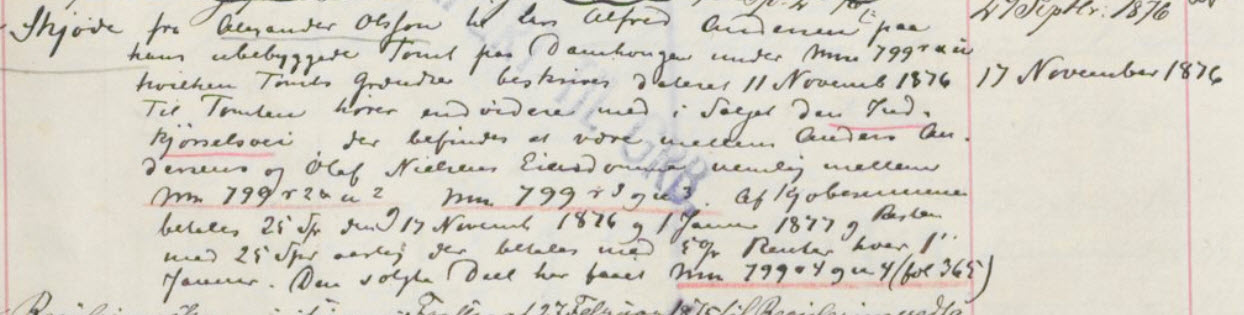 27 Septbr: 1876
Skjøde fra Alexander Olsson til Lars Alfred Andersen paa
hans ubebyggede Tomt paa Damhougen under Mno 799 r a u
hvilken Tomts Grændser beskrives dateret 11 Novemb 1876 17 November 1876
Til Tomten hører endvidere med i Salget den Ind-
kjørselsvei der befindes at være mellem Anders An-
dersens og Olaf Nielsens Eiendomme nemlig mellem
Mno 799 r 2 u 2 Mno 799 r 3 og u 3. Af Kjøbesummen
betales 25 Spd den 17 Novemb 1876 og 1 Januar 1877 og Resten
med 25 Spd aarlig der betales med 5 % Renter hver 1
Januar. Den solgte Deel har faaet Mno 799 r 4 og u 4 (fol 365)
27 Februar 1875 til